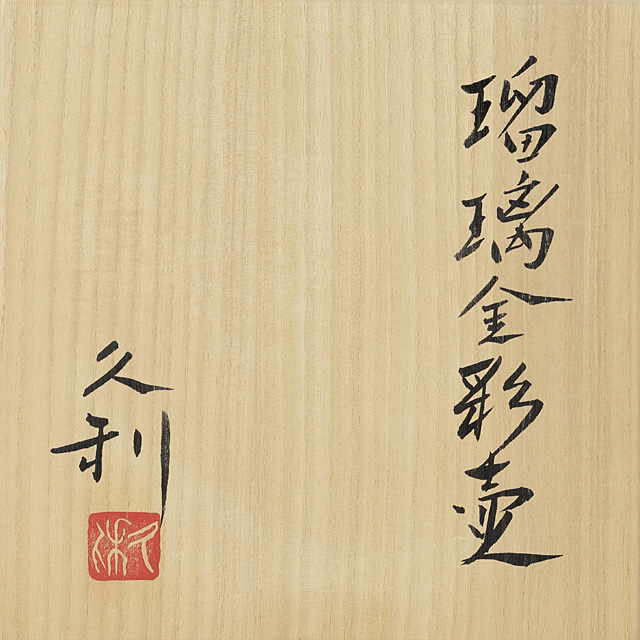 瑠璃金彩壷
久利